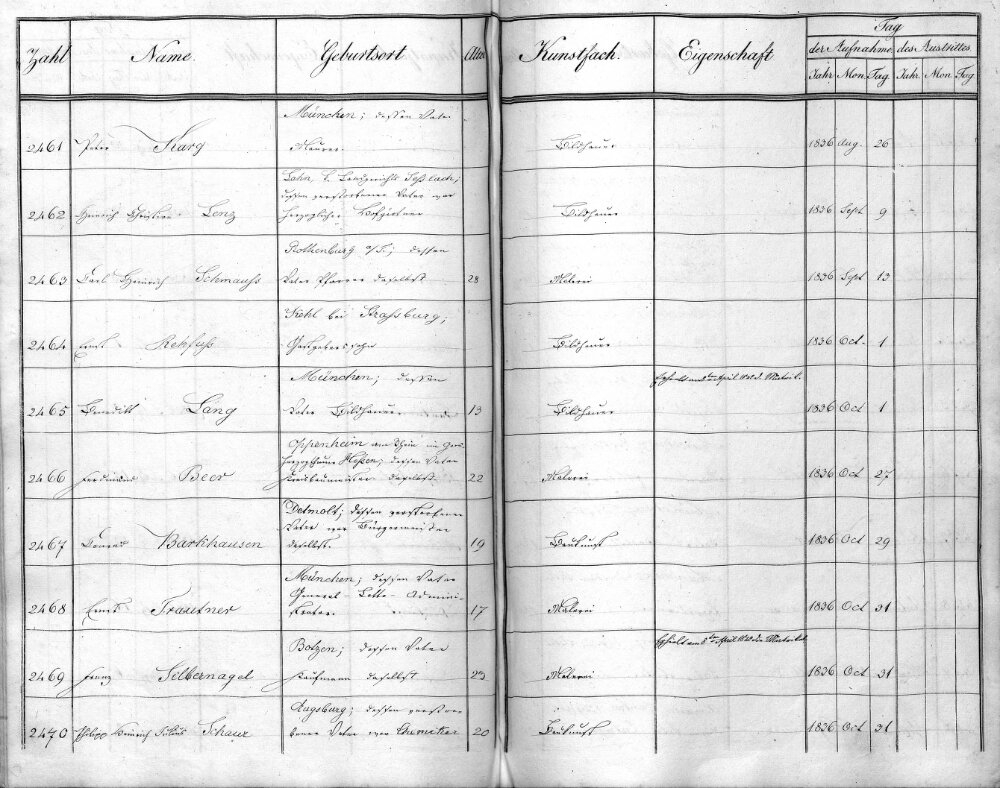 Tag
Zahl Name. Geburtsort Alter Kunstfach. Eigenschaft der Aufnahme. des Austrittes
Jahr Mon. Tag Jahr Mon Tag
München; dessen Vater
2461 Peter Karg Maurer Bildhauer 1836 Aug. 26
Lahn, k. Landgerichts Seßlach;
dessen verstorbener Vater war
2462 Heinrich Christian Lenz herzoglicher Hofgärtner Bildhauer 1836 Sept 9
Rothenburg a/T.; dessen
2463 Carl Heinrich Schmauss Vater Pfarrer daselbst 28 Malerei 1836 Sept 13
Kehl bei Strassburg;
2464 Ernst Rehfuss Gastgeberssohn Bildhauer 1836 Oct. 1
München; dessen Erhielt am April 1840 d. Matrik.
2465 Benedikt Lang Vater Bildhauer 13 Bildhauer 1836 Oct 1
Oppenheim am Rhein im Gros
herzogthum Hessen; dessen Vater
2466 Ferdinand Beer Kreisbaumeister daselbst. 22 Malerei 1836 Oct 27
Detmolt; dessen verstorbener
Vater war Bürgermeister
2467 Conrad Barkhausen daselbst. 19 Baukunst 1836 Oct 29
München; dessen Vater
General-Lotto-Adminis
2468 Ernst Trautner trator 17 Malerei 1836 Oct 31
Botzen; dessen Vater Erhielt am 5 April 1840 die Matrikel
2469 Franz Silbernagel Kaufmann daselbst 23 Malerei 1836 Oct 31
Augsburg; dessen verstor
2470 Philipp Heinrich Schaur bener Vater war 20 Baukunst 1836 Oct 31